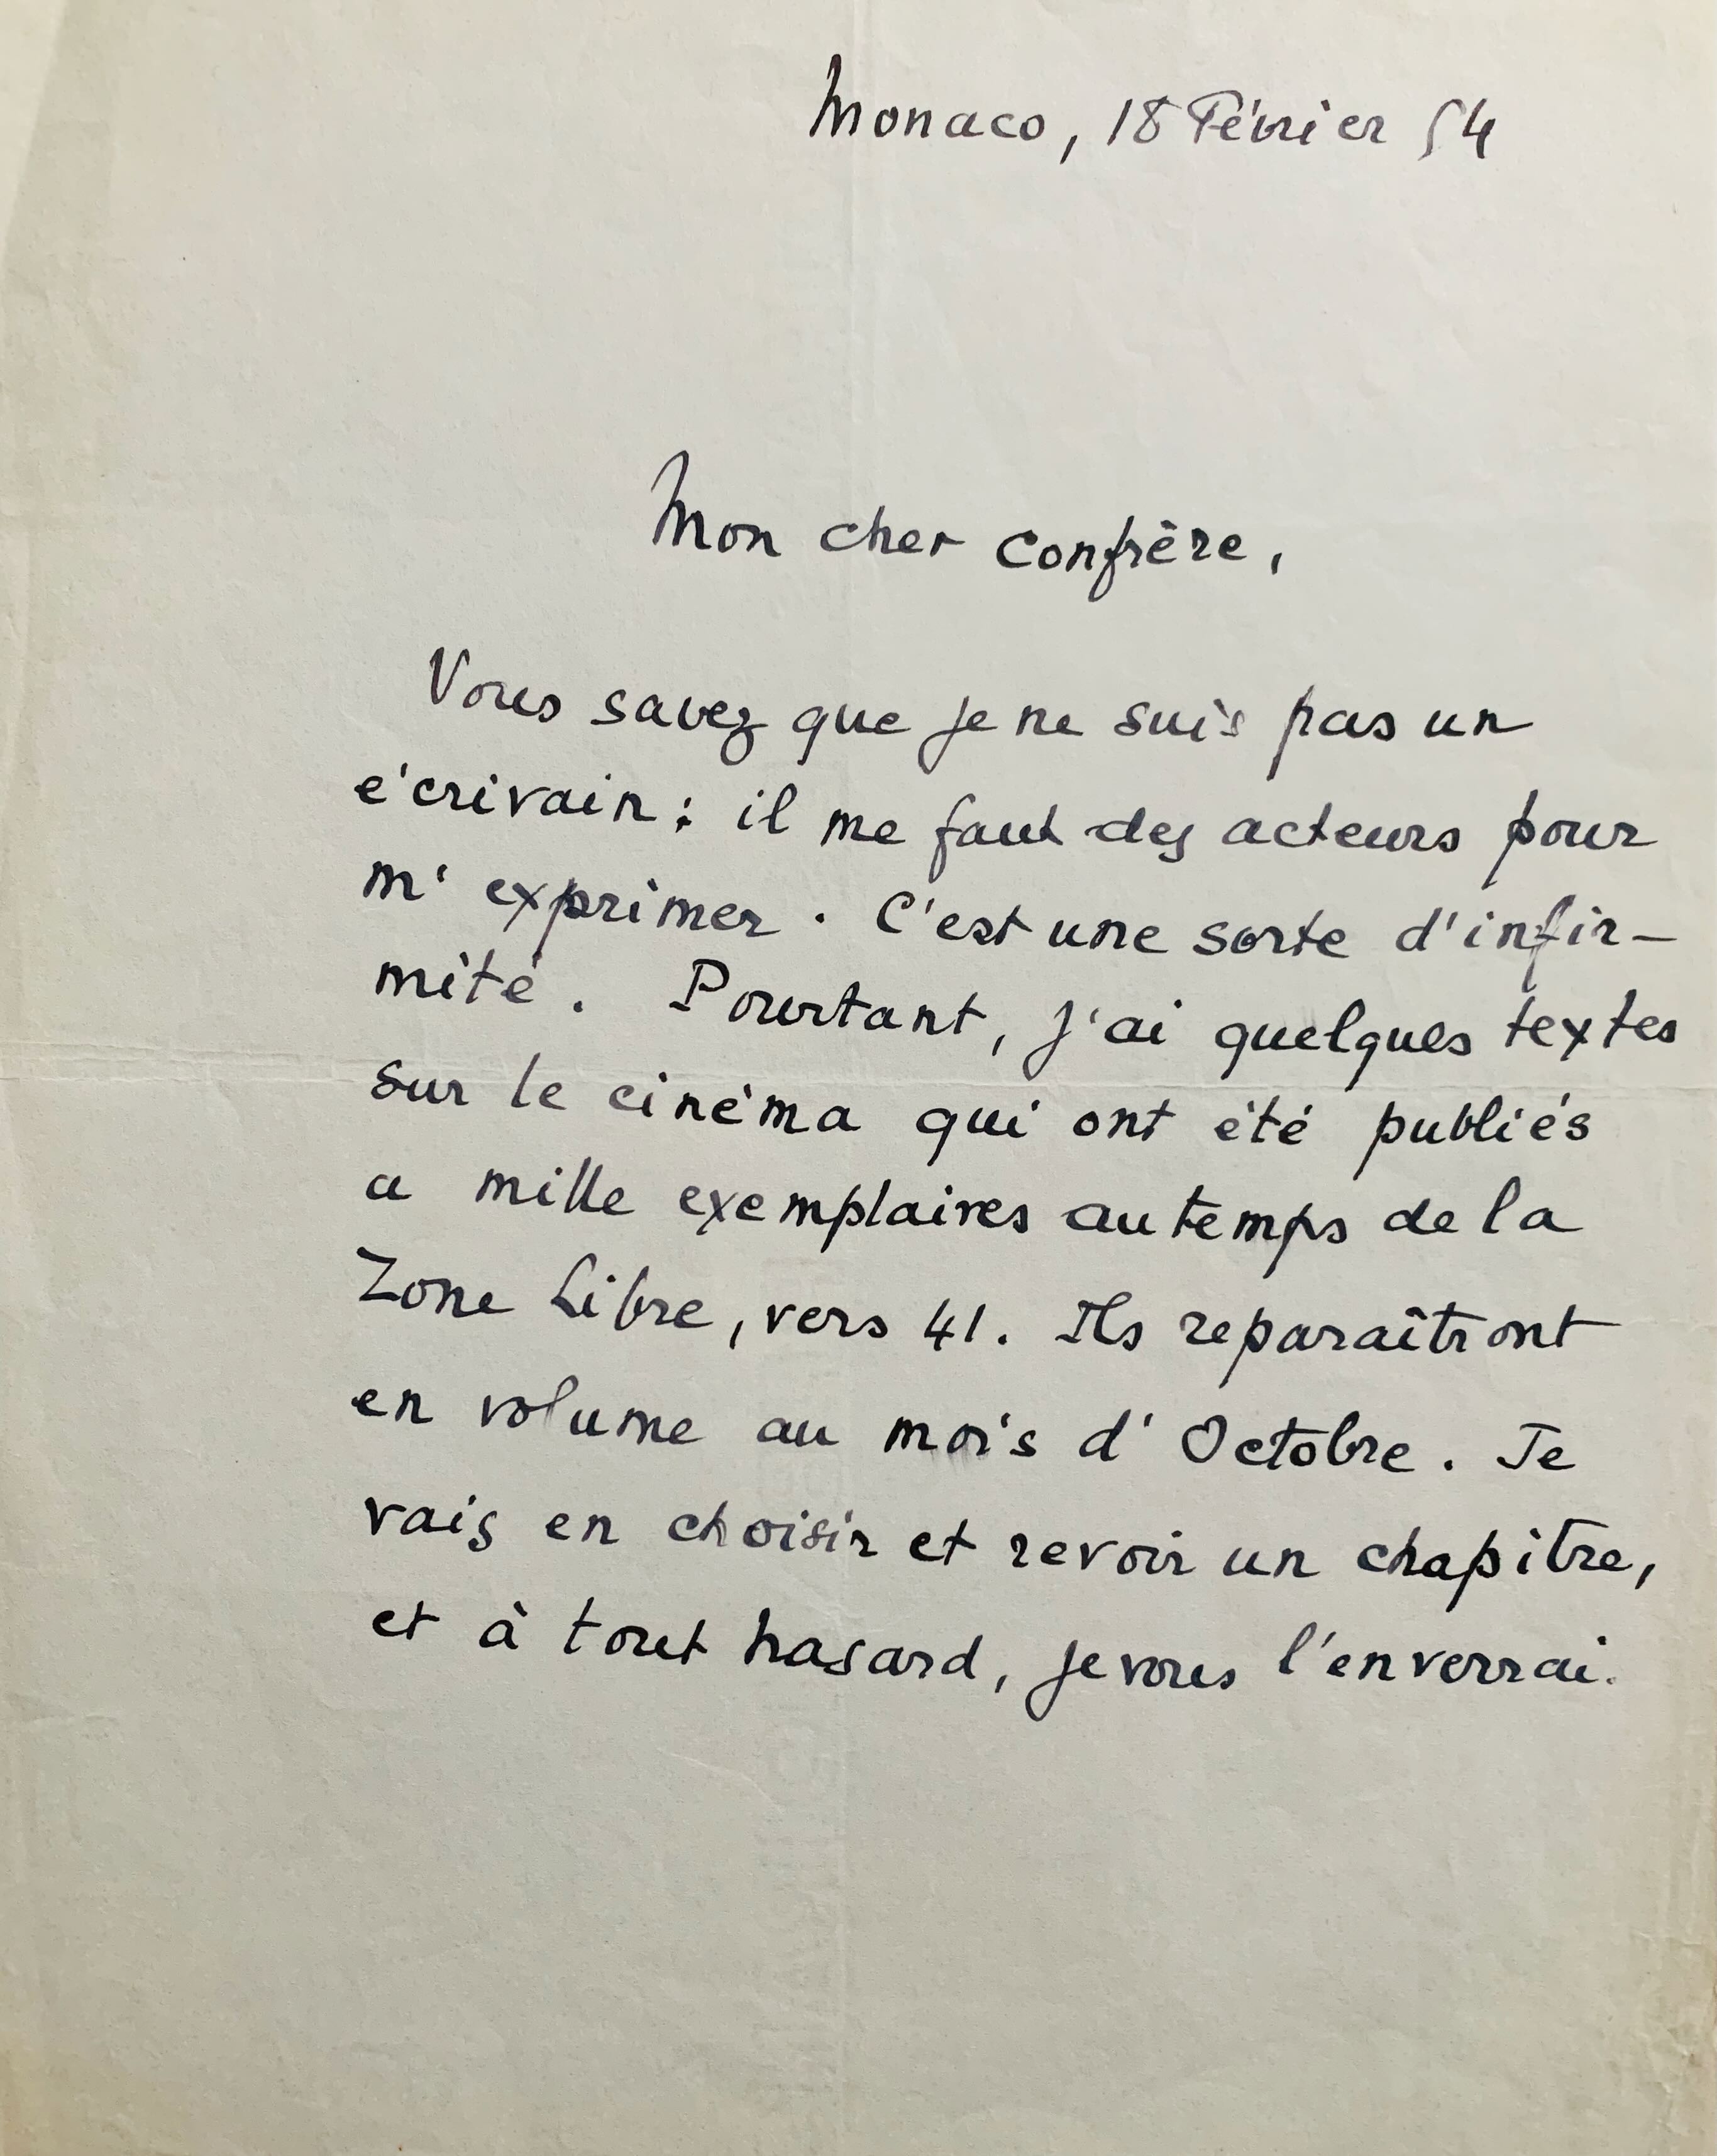 Monaco, 18 Février 54
Mon cher confrère,
Vous savez que je ne suis pas un
écrivain : il me faut des acteurs pour
m'exprimer. C'est une sorte d'infir-
mité. Pourtant, j'ai quelques textes
sur le cinéma qui ont été publiés
a mille exemplaires au temps de la
Zone Libre, vers 41. Ils reparaîtront
en volume au mois d'Octobre. Je
vais en choisir et revoir un chapitre,
et à tout hasard, je vous l'enverrai.